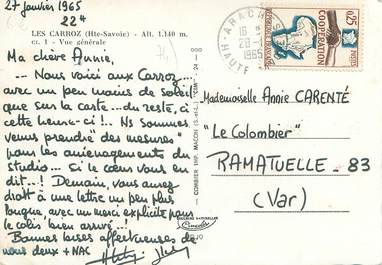 27 janvier 1965
22 H
LES CARROZ (Hte-Savoie) - Alt. 1.140 m.
cc. 1 - Vue générale
Ma chère Annie,
-- Nous voici aux Carroz...
avec un peu moins de soleil
que sur la carte... du reste, à
cette heure-ci!.. Ns sommes
venus prendre "des mesures"
pour les aménagements du
studio... Si le cœur vous en
dit..! Demain, vous aurez
droit à une lettre un peu plus
longue, avec un merci explicite pour
le colis bien arrivé..!
Bonnes bises affectueuses de
nous deux + NAC
COMBIER IMP. MACON
CIM
COULEURS NATURELLES
Combier
ARACHES
HAUTE
16
28-1
1965
0,25
POSTES
COOPÉRATION
Mademoiselle Annie CARENTÉ
"Le Colombier"
RAMATUELLE - 83
(Var)